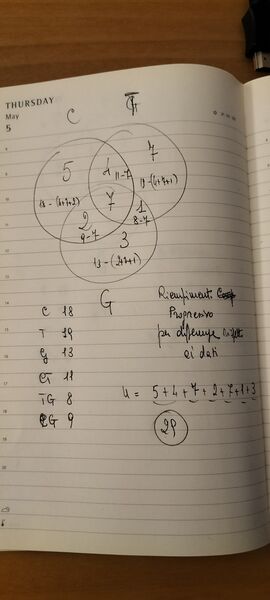 THURSDAY
May
5
C T
5 4 11-7 7
18-(4+7+2) 7 19-(4+7+1)
2 1
9-7 8-7
3
13-(2+7+1)
G
C 18
T 19
G 13
CT 11
TG 8
CG 9
Riempimento
Progressivo
per differenze
ai dati
U = 5+4+7+2+7+1+3
29